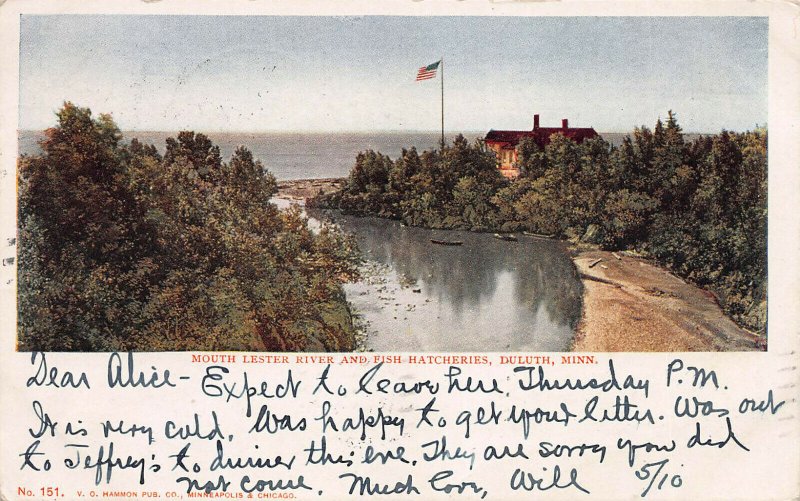 MOUTH LESTER RIVER AND FISH HATCHERIES, DULUTH, MINN.
Dear Alice - Expect to leave here, Thursday P.M.
It is very cold. Was happy to get your letter. Was out
to Jeffrey's to dinner this eve. They are sorry you did
not come. Much Love, Will 5/10
No. 151. V. O. HAMMON PUB. CO., MINNEAPOLIS & CHICAGO.